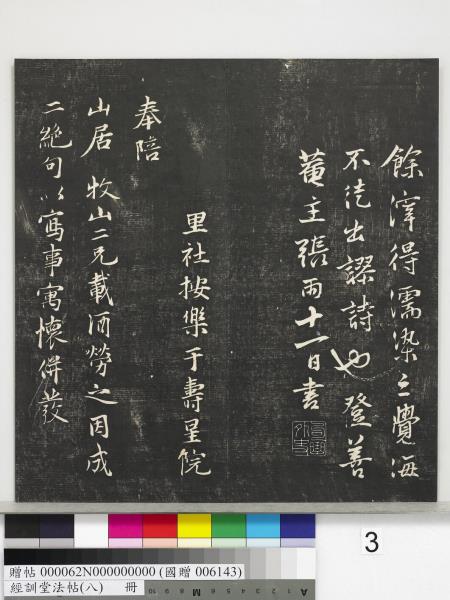 餘滓得濡染之覺海
不徒出謬詩也登善
菴主張雨十一日書
里社按樂于壽星院
奉陪
山居牧山二兄載酒勞之因成
二絕句以寫事寓懷併發
3
贈帖 000062N000000000 (國贈 006143)
經訓堂法帖(八) 冊